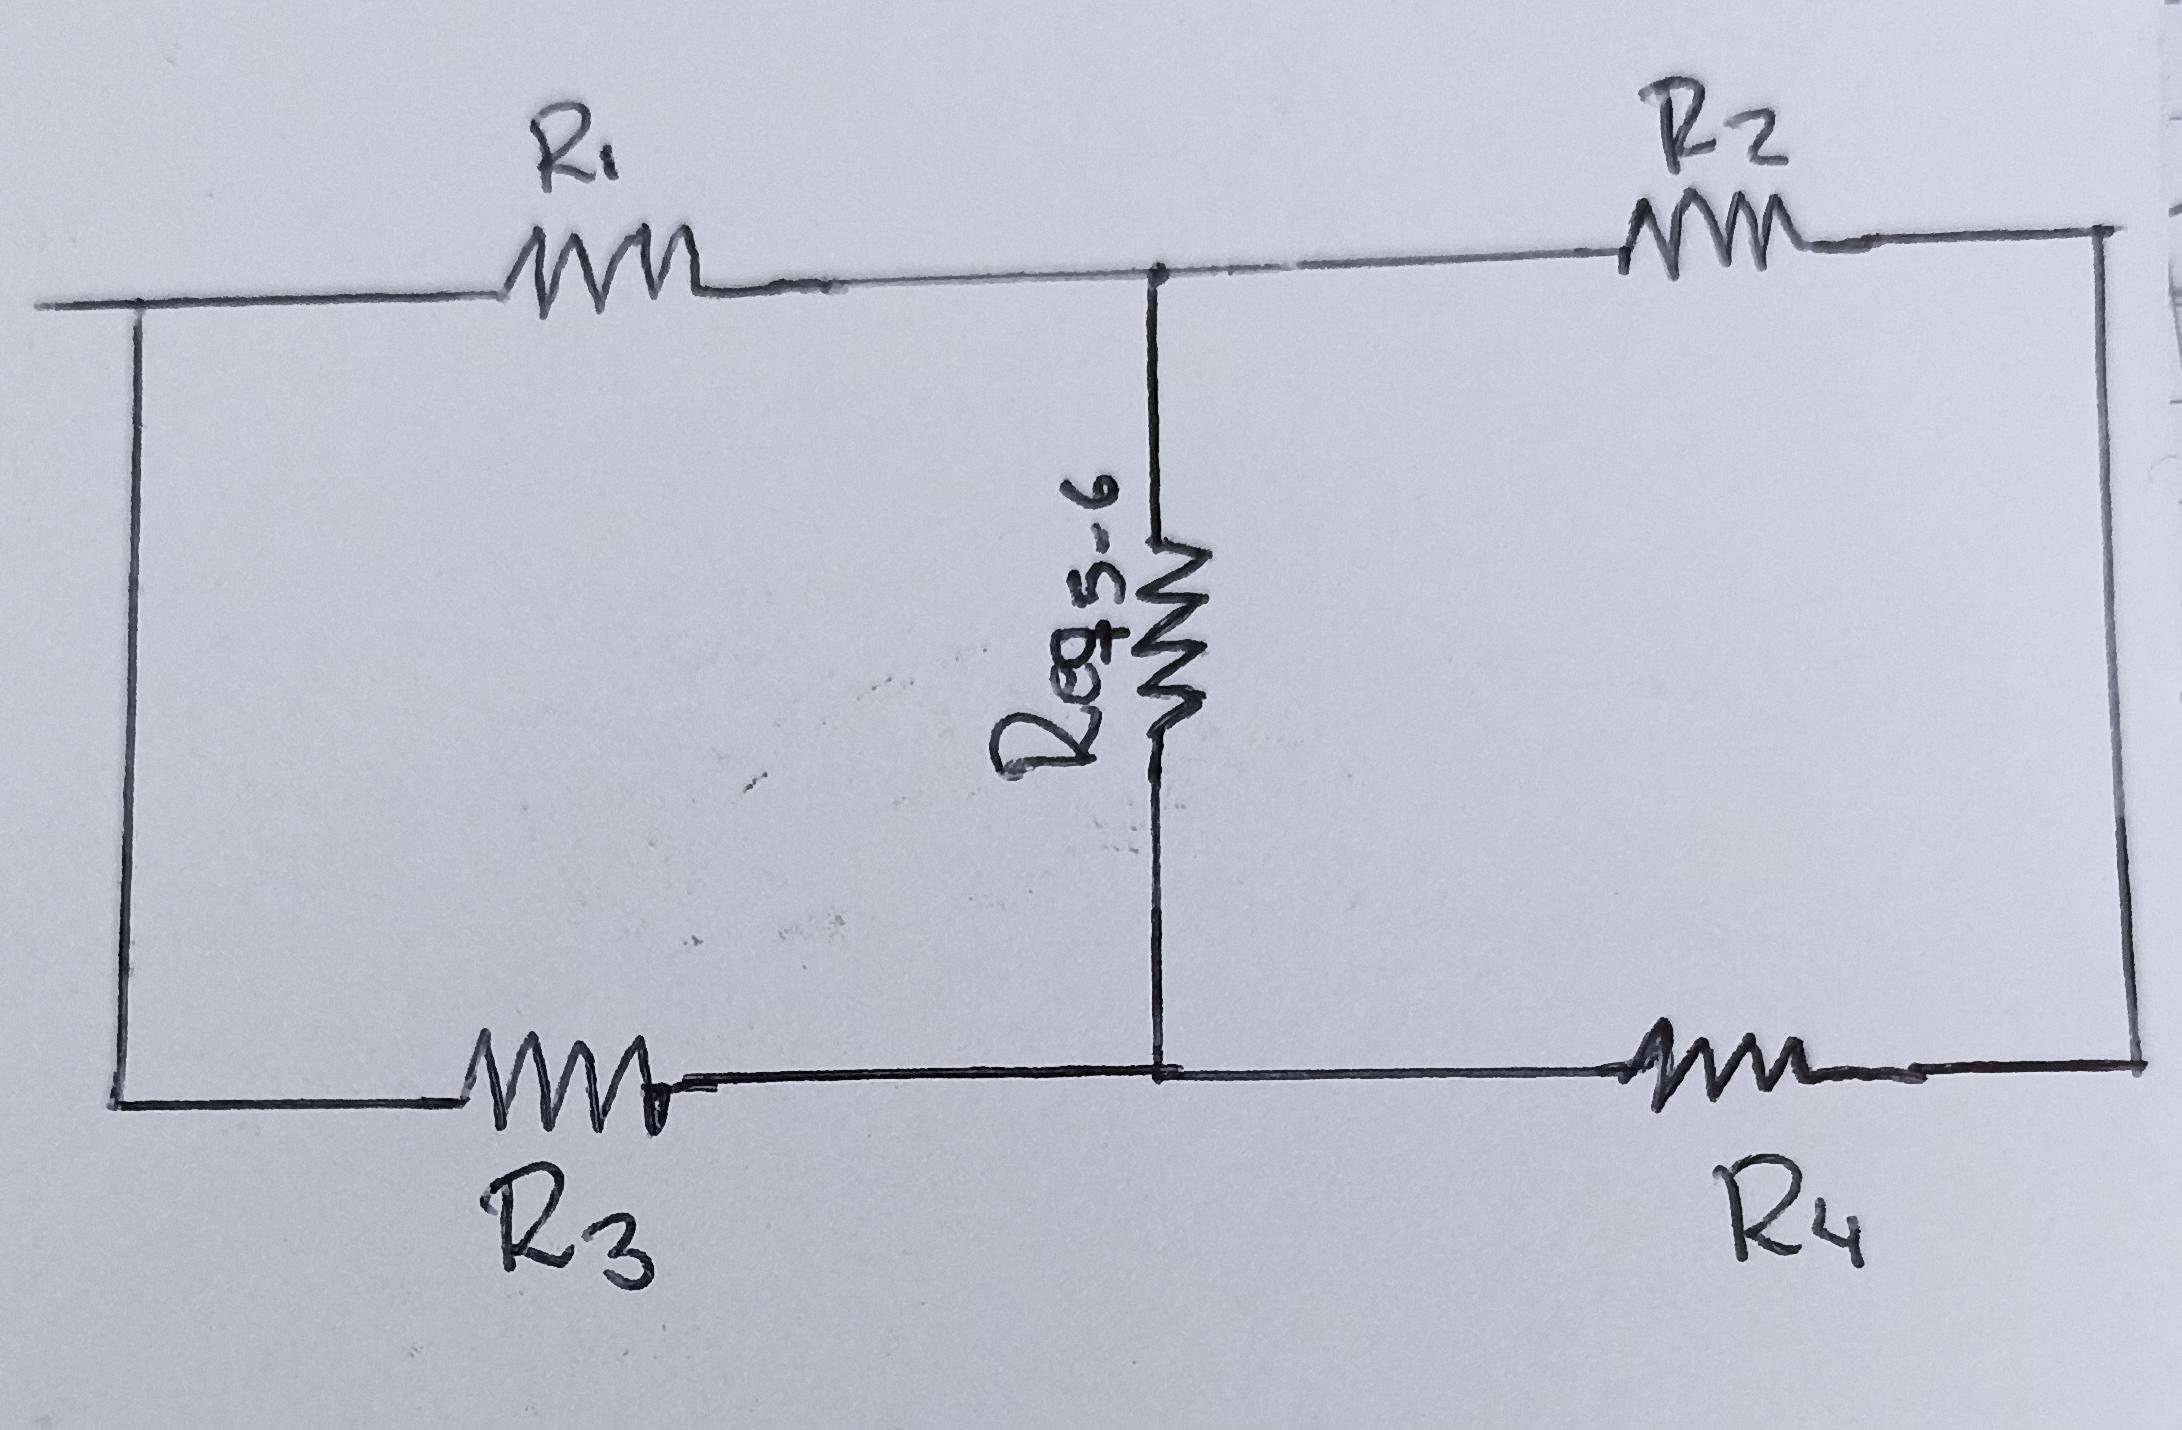 R1
R2
Req5-6
R3
R4